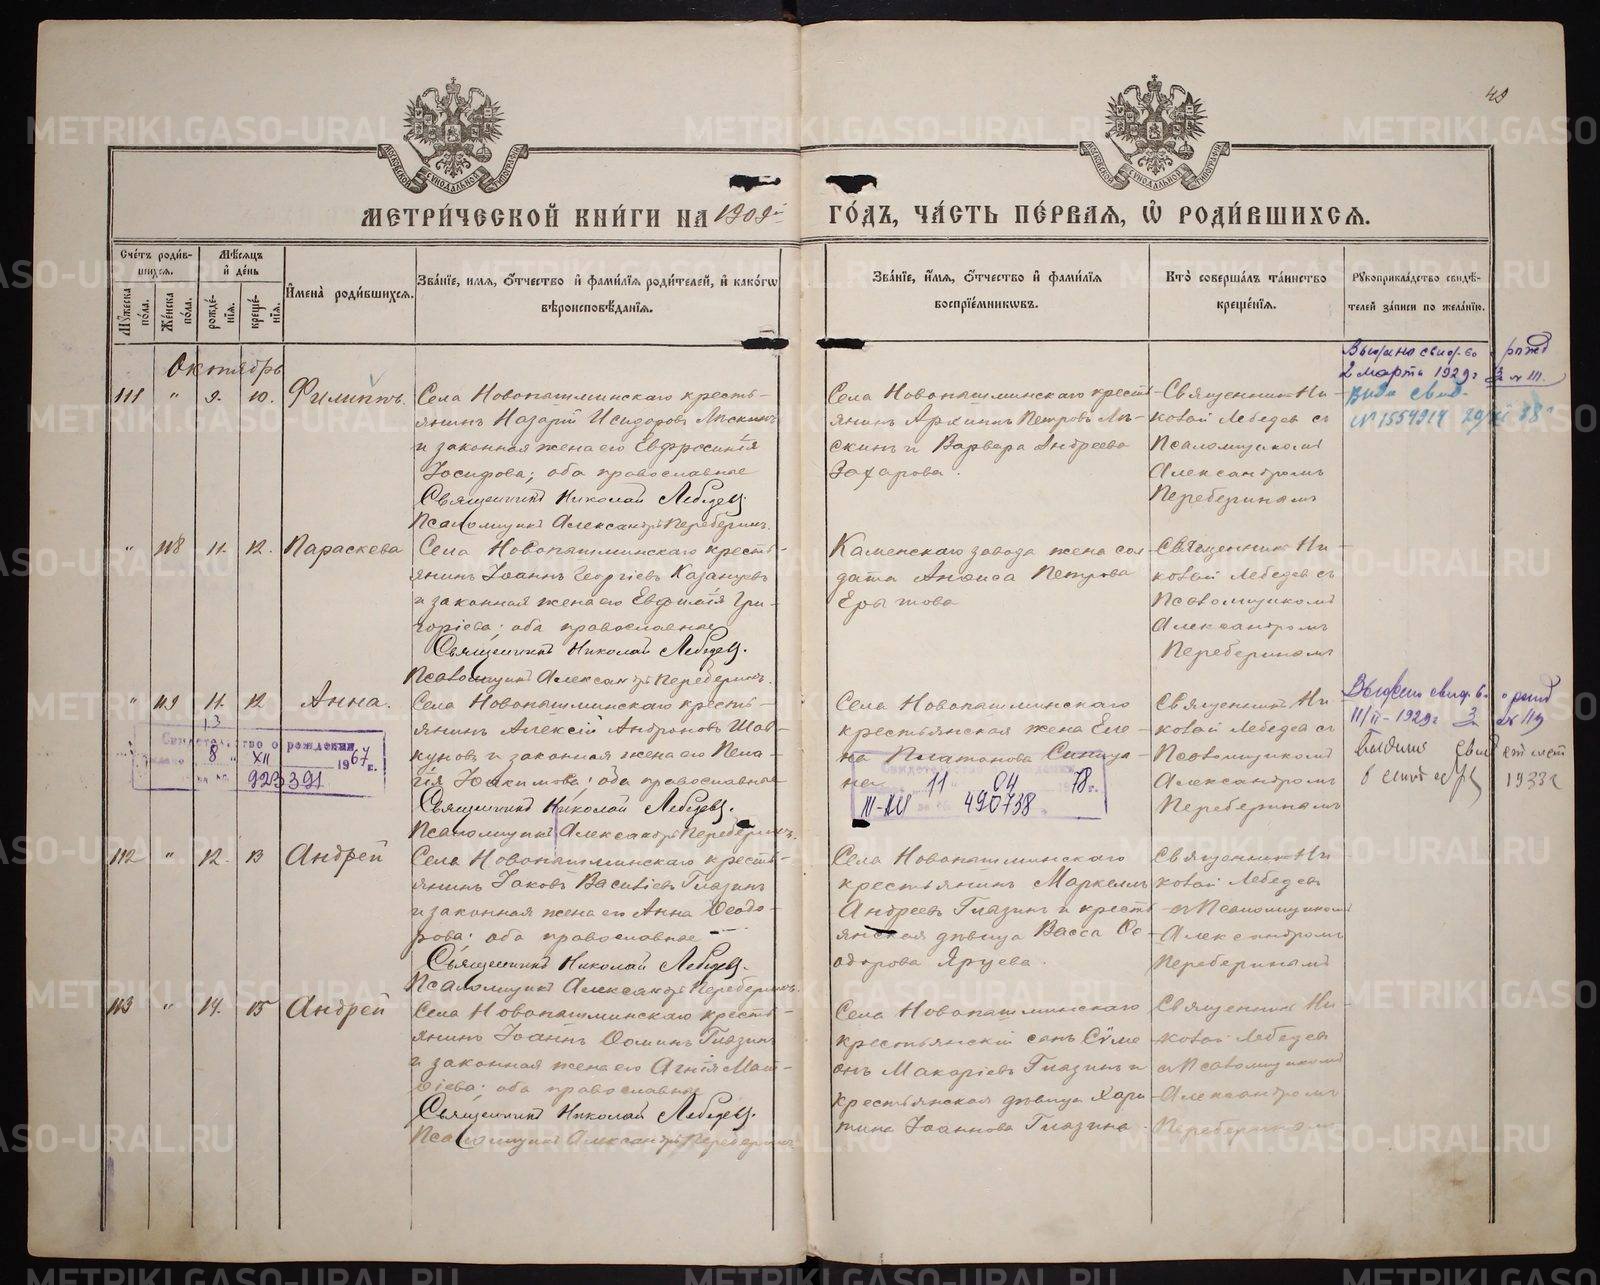 49
МЕТРИ́ЧЕСКОЙ КНИ́ГИ НА 1909й ГО́ДЪ, ЧА́СТЬ ПЕ́РВАЯ, Ѡ РОДИ́ВШИХСЯ.
Сче́тъ роди́вшихся.
Му́жеска по́ла.
Же́нска по́ла.
Мѣ́сяцъ и́ де́нь
рожде́нія.
креще́нія.
И҆мена̀ роди́вшихся.
Зва́ніе, имя, ѻ҆́тчество и҆ фами́лія роди́телей, и҆ како́гѡ
вѣроисповѣ́данія.
Зва́ніе, и҆́мя, ѻ҆́тчество и҆ фами́лія
воспріе́мникѡвъ.
Кто̀ соверша́лъ та́инство
креще́нія.
Рꙋкоприкла́дство свидѣ́-
телей за́писи по жела́нію.
Октябрь
111 " 9. 10. Филиппъ.
Села Новопышминскаго кресть-
янинъ Назарій Исидоровъ Лыскинъ
и законная жена его Евфросинія
Іосифова; оба православные
Священникъ Николай Лебедевъ.
Псаломщикъ Александръ Переберинъ.
Села Новопышминскаго кресть-
янинъ Архиппъ Петровъ Лы-
скинъ и Варвара Андреева
Захарова.
Священник Ни-
колай Лебедев съ
Псаломщикомъ
Александромъ
Перебериномъ
2 марта 1929 г. З. № 111.
№ 1554914
" 118 11. 12. Параскева
Села Новопышминскаго кресть-
янинъ Іоаннъ Георгіевъ Казанцевъ
и законная жена его Евфимія Гри-
горіева; оба православные
Священникъ Николай Лебедевъ.
Псаломщикъ Александръ Переберинъ.
Каменскаго завода жена сол
дата Анфиса Петрова
Священник Ни-
колай Лебедев съ
Псаломщикомъ
Александромъ
Перебериномъ
" 119 11. 12 Анна.
Села Новопышминскаго кресть-
янинъ Алексій Андроновъ Шав-
куновъ и законная жена его Пела-
гія Іоакимова; оба православные
Священникъ Николай Лебедевъ.
Псаломщикъ Александръ Переберинъ.
Свидетельство о рождении
8 XII 1967 г.
923391
Села Новопышминскаго
крестьянская жена Еле-
на Платонова Синица-
на
11 04 78 г.
III-АИ № 490738
Священник Ни-
колай Лебедев съ
Псаломщикомъ
Александромъ
Перебериномъ
11/II-1929 г. З. № 119
1933 г
112 " 12. 13 Андрей
Села Новопышминскаго кресть-
янинъ Іаковъ Василіевъ Глазинъ
и законная жена его Анна Ѳеодо-
рова; оба православные
Священникъ Николай Лебедевъ.
Псаломщикъ Александръ Переберинъ.
Села Новопышминскаго
крестьянинъ Маркеллъ
Андреевъ Глазинъ и кресть-
янская дѣвица Васса Ѳе-
одорова Ярцева.
Священник Ни-
колай Лебедевъ
съ Псаломщикомъ
Александромъ
Перебериномъ
113 " 14. 15 Андрей
Села Новопышминскаго кресть-
янинъ Іоаннъ Ѳоминъ Глазинъ
и законная жена его Агнія Мат-
ѳіева; оба православные
Священникъ Николай Лебедевъ.
Псаломщикъ Александръ Переберинъ
Села Новопышминскаго
крестьянскій сынъ Сѵме
онъ Макаріевъ Глазинъ и
крестьянская дѣвица Хари
тина Іоаннова Глазина.
Священник Ни-
колай Лебедевъ
съ Псаломщикомъ
Александромъ
Перебериномъ